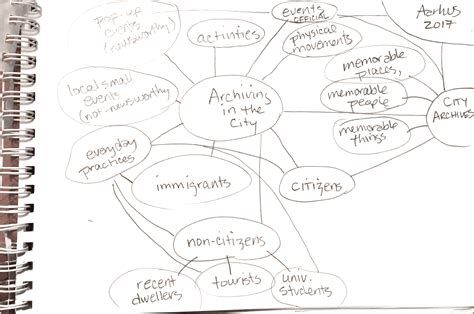 pop-up
events
(newsworthy)
activities
events
OFFICIAL
physical
movements
Aarhus
2017
local small
events
(not-newsworthy)
Archiving
in the
City
memorable
places,
memorable
people
memorable
things
CITY
ARCHIVES
everyday
practices
immigrants
citizens
non-citizens
recent
dwellers
tourists
univ.
students